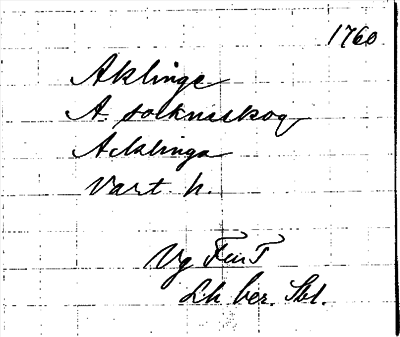 1760
Aklinge
A. socknaskog
Acklinga
Vart. h.
Vg FurT
Lh ber. Sbl.